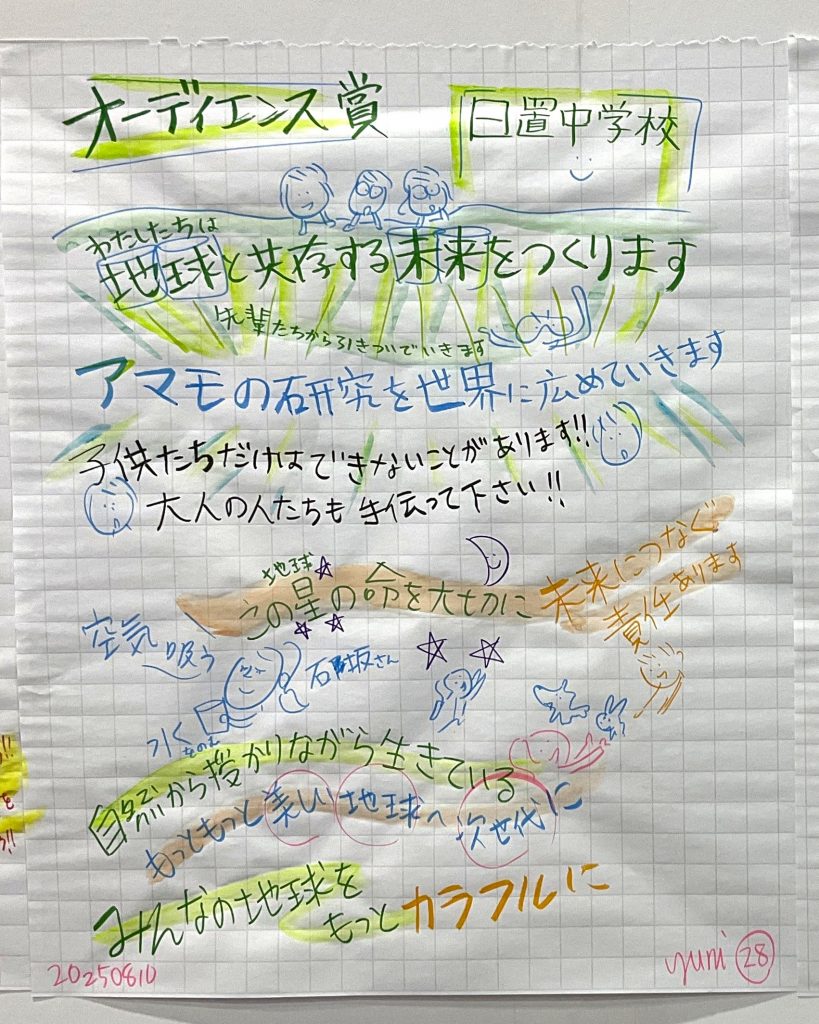 オーディエンス賞
日置中学校
わたしたちは
地球と共存する未来をつくります
先輩たちから引きついでいきます
アマモの研究を世界に広めていきます
子供たちだけはできないことがあります!!
大人の人たちも手伝って下さい!!
地球
この星の命を大切に
未来につなぐ
責任あります
空気
吸う
さん
自然から授かりながら生きている
もっともっと美しい地球へ次世代に
みんなの地球を
もっとカラフルに
20250810
yuni 28